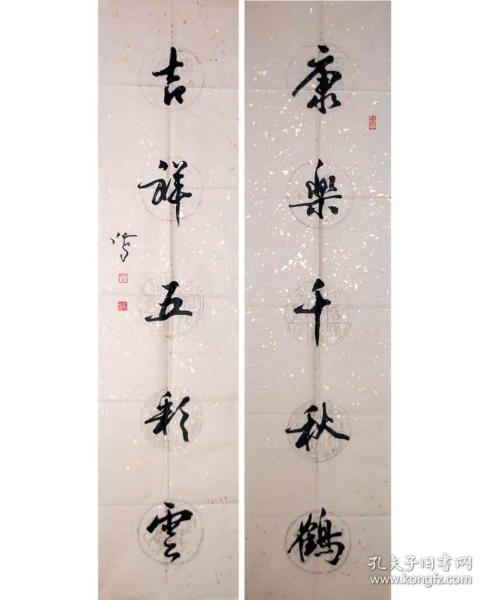 康樂千秋鶴
吉祥五彩雲
孔夫子旧书网
www.kongfz.com